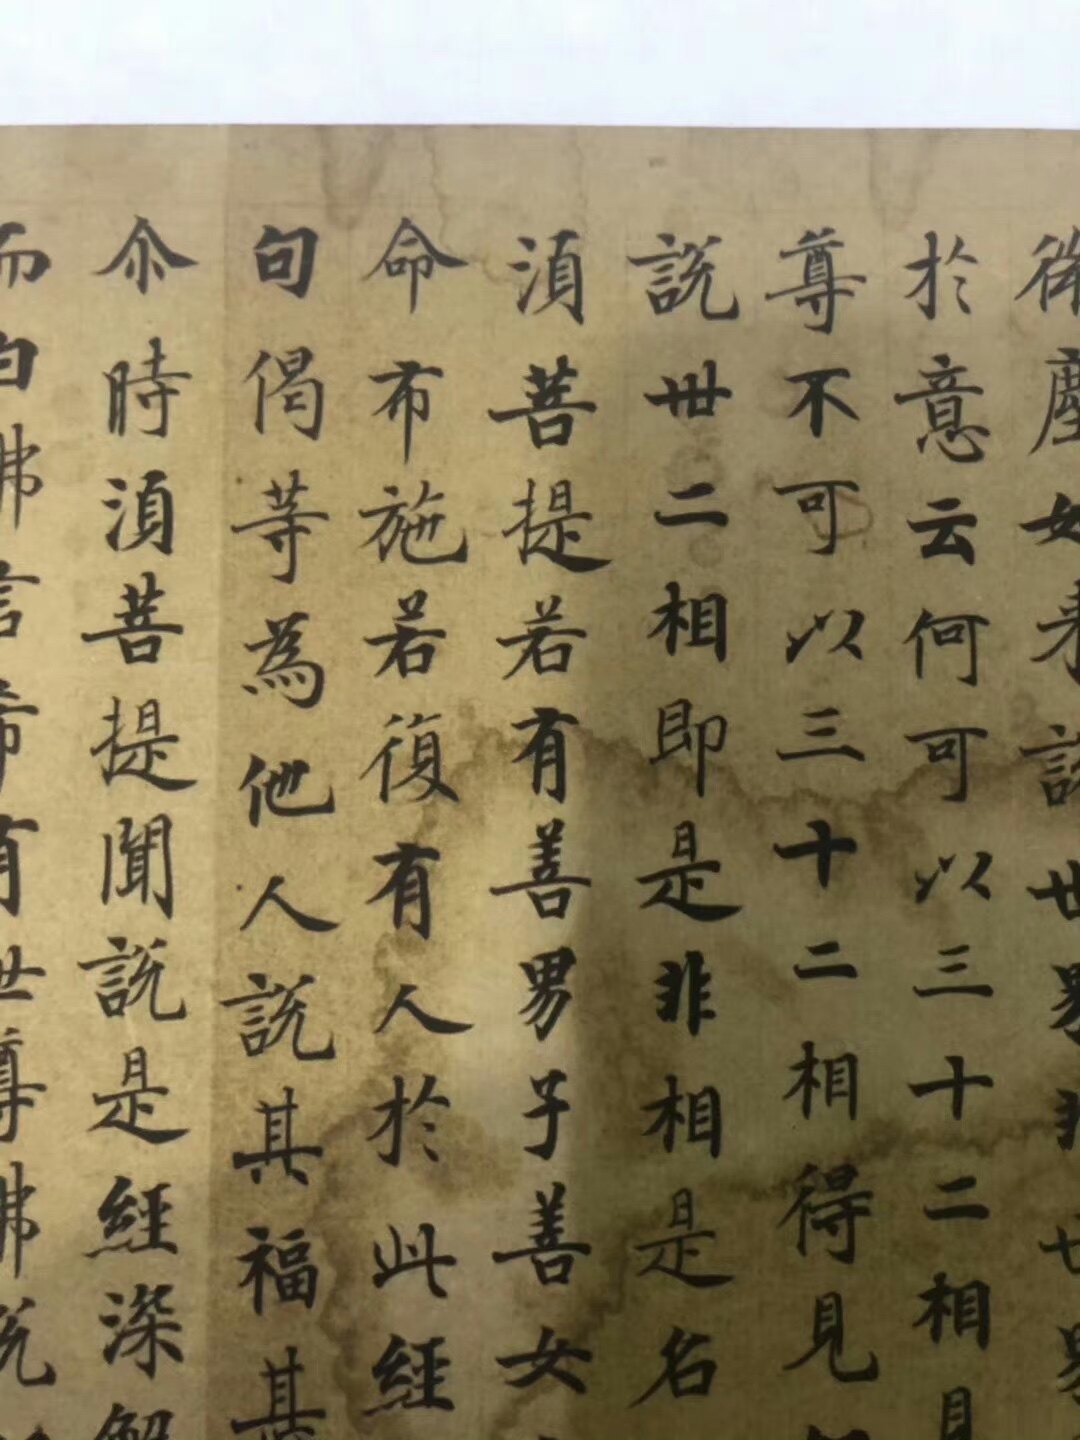 微塵如来說世界非世界
於意云何可以三十二相見
尊不可以三十二相得見
說丗二相即是非相是名
湏菩提若有善男子善女
命布施若復有人於此經
句偈等為他人說其福其
尒時湏菩提聞說是經深解
而白佛言希有世尊佛說